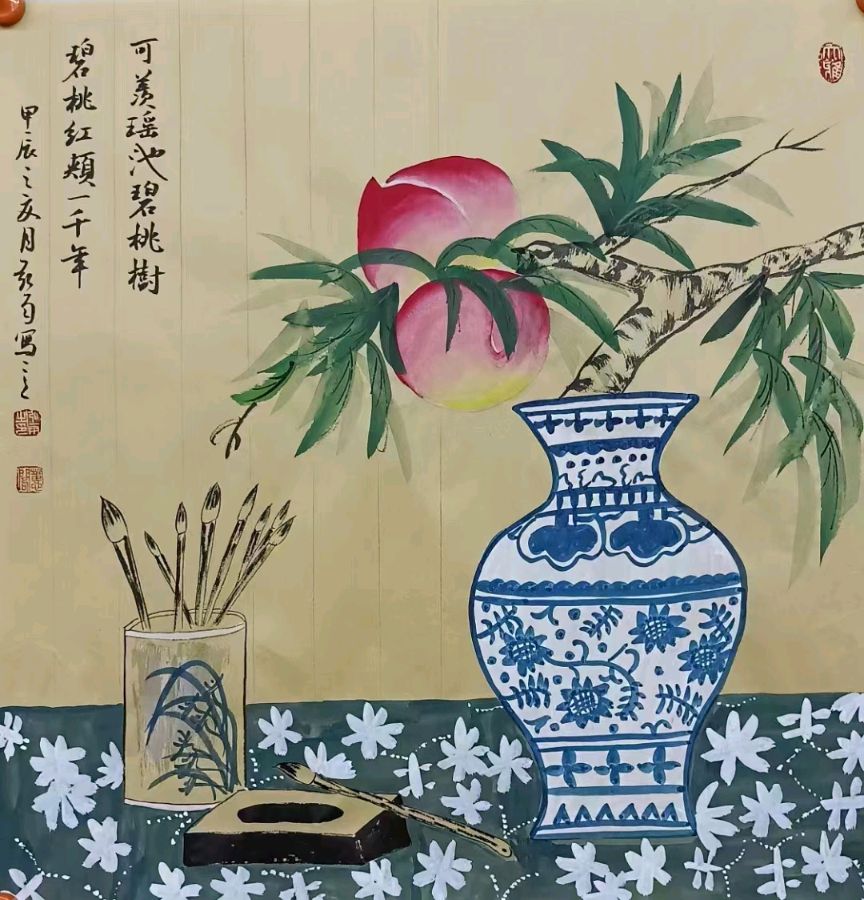 可羡瑶池碧桃樹
碧桃红頰一千年
甲辰之亥月
写之